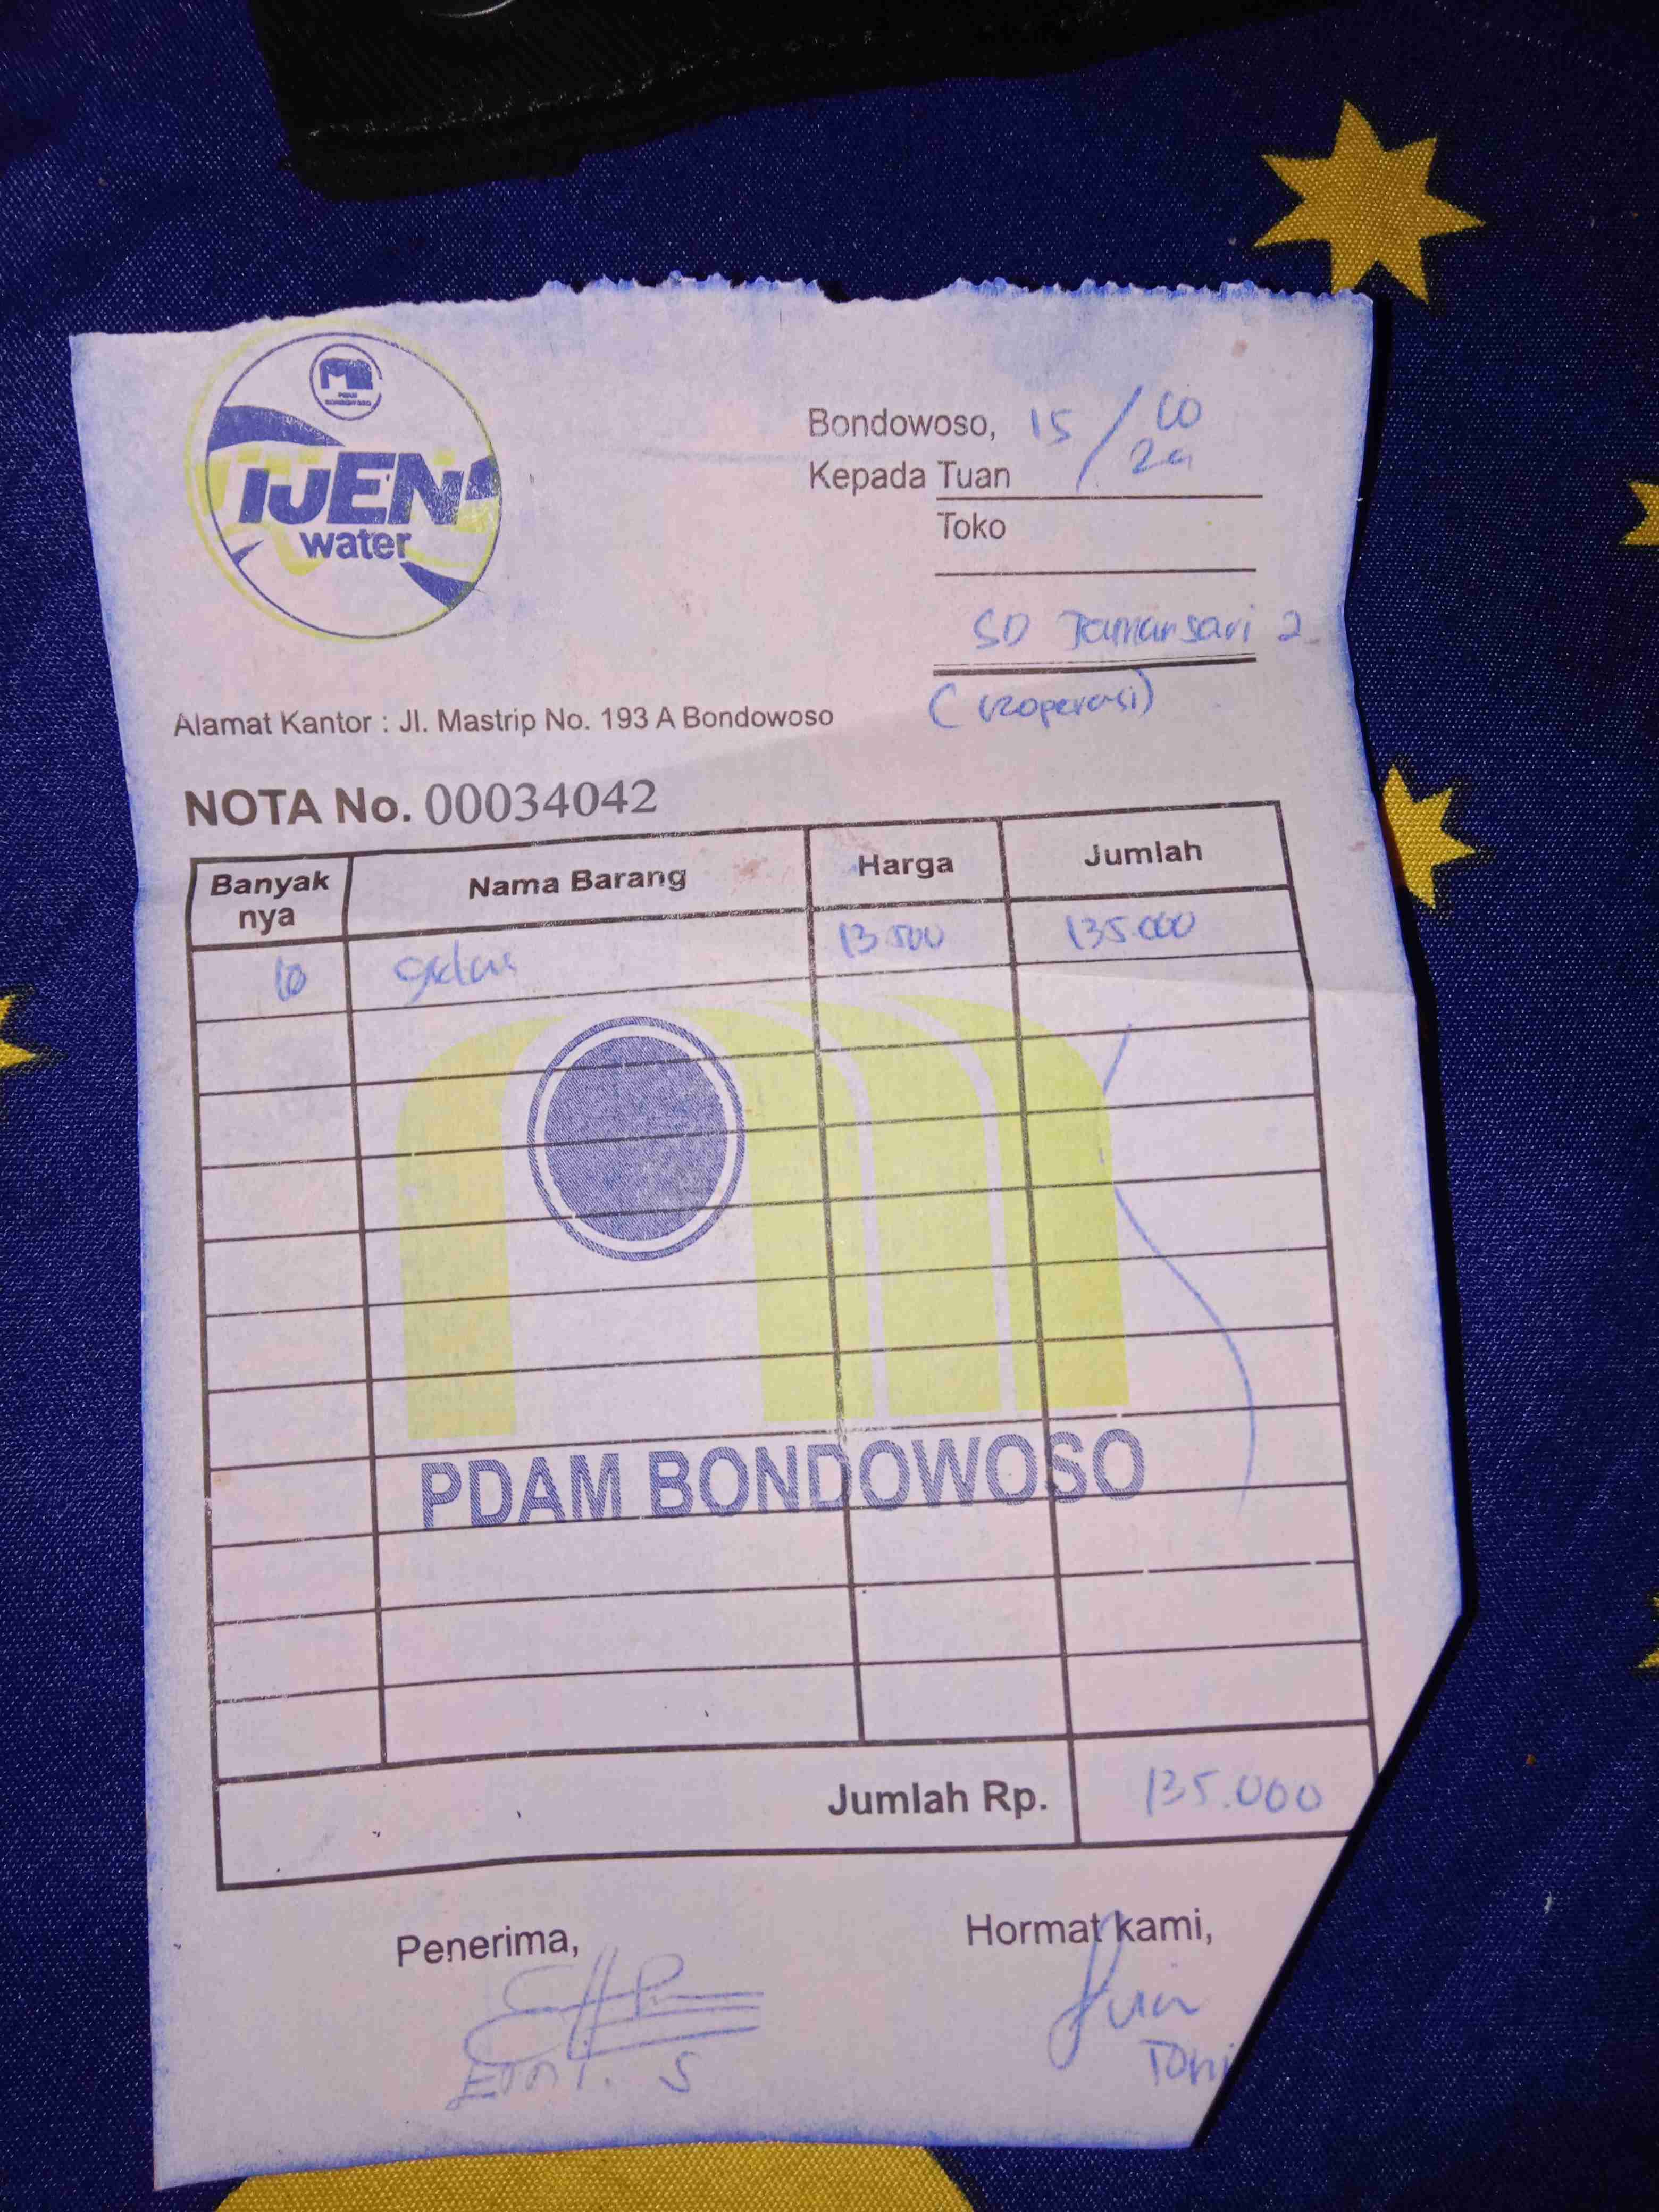 PDAM
BONDOWOSO
IJEN
water
Bondowoso, 15/10
24
Kepada Tuan
Toko
SD Tamansari 2
(Koperasi)
Alamat Kantor : Jl. Mastrip No. 193 A Bondowoso
NOTA No. 00034042
Banyak nya Nama Barang Harga Jumlah
10 13.500 135.000
PDAM BONDOWOSO
Jumlah Rp. 135.000
Penerima, Hormat kami,
Toni